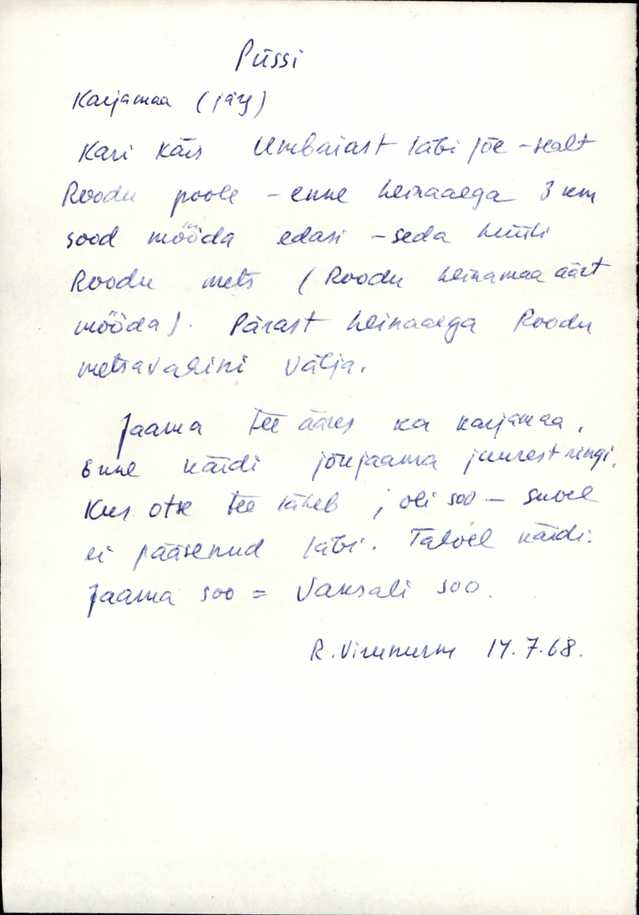 Püssi
Karjamaa (järg)
Kari käis Umbaiast läbi jõe - sealt
Roodu poole - enne heinaaega 3 km
sood mööda edasi - seda hüüti
Roodu mets (Roodu heinamaa äärt
mööda). Pärast heinaaega Roodu
metsavahini välja.
Jaama tee ääres ka karjamaa.
Enne käidi jõujaama juurest ringi.
Kus otse tee läheb, oli soo - suvel
ei pääsenud läbi. Talvel käidi.
Jaama soo = Vaksali soo.
R. Virunurm 17.7.68.